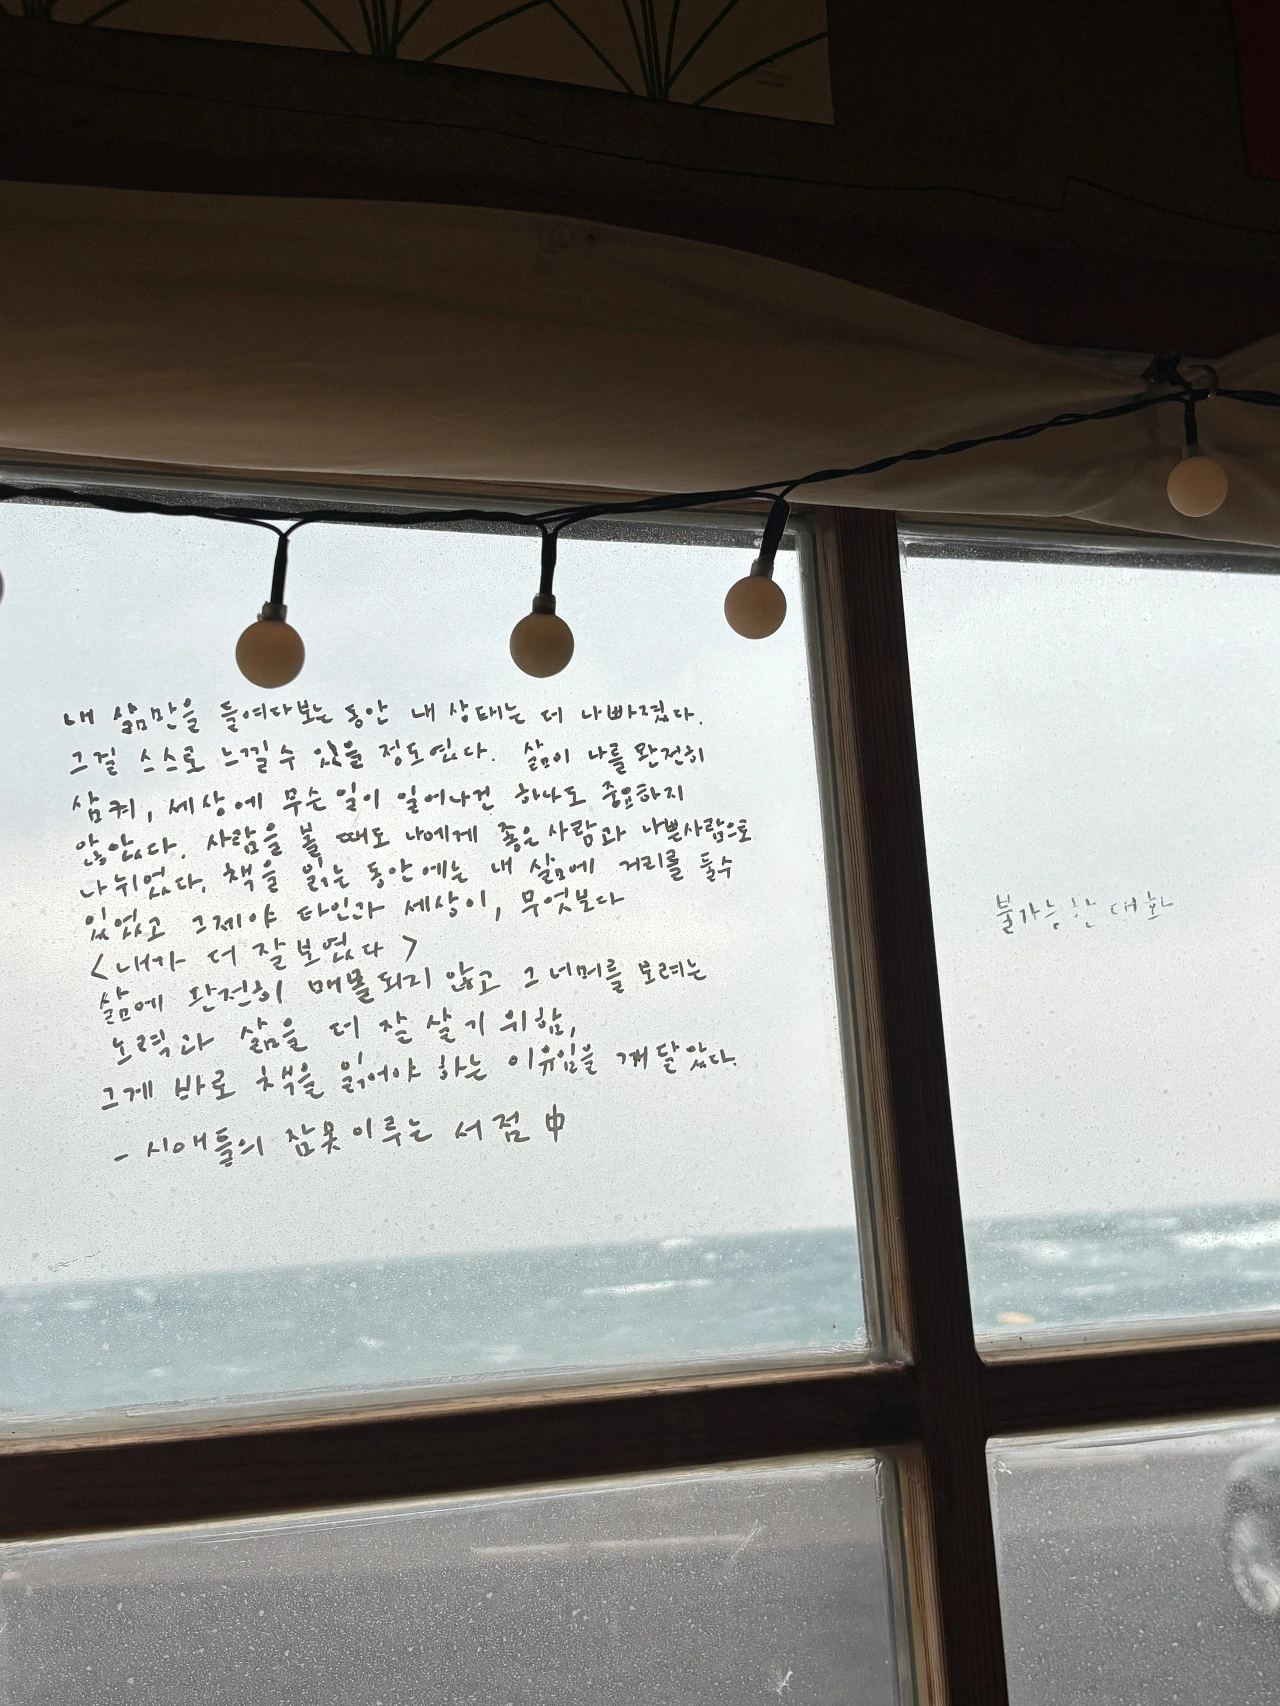 내 삶만을 들여다보는 동안 내 상태는 더 나빠졌다.
그걸 스스로 느낄 수 있을 정도였다. 삶이 나를 완전히
삼켜, 세상에 무슨 일이 일어나건 하나도 중요하지
않았다. 사람을 볼 때도 나에게 좋은 사람과 나쁜사람으로
나뉘었다. 책을 읽는 동안에는 내 삶에 거리를 둘수
있었고 그제야 타인과 세상이, 무엇보다
<내가 더 잘 보였다>
삶에 완전히 매몰되지 않고 그 너머를 보려는
노력과 삶을 더 잘 살기 위함,
그게 바로 책을 읽어야 하는 이유임을 깨달았다.
- 시애틀의 잠못이루는 서점 中
불가능한 대화